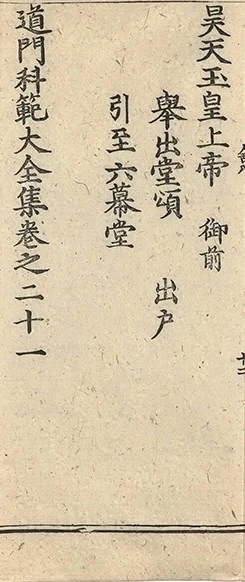 昊天玉皇上帝 御前
舉出堂頌 出户
引至六幕堂
道門科範大全集卷之二十一